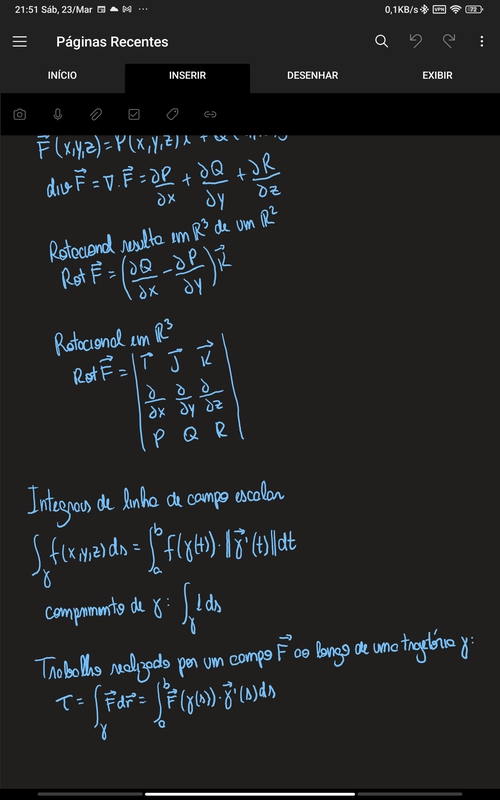 21:51 Sáb, 23/Mar
0,1KB/s VPN 72
Páginas Recentes
INÍCIO INSERIR DESENHAR EXIBIR
F⃗(x,y,z)=P(x,y,z)
div F⃗ = ∇.F⃗ = ∂P/∂x + ∂Q/∂y + ∂R/∂z
Rotacional resulta em R³ de um R²
Rot F⃗ = (∂Q/∂x - ∂P/∂y) K⃗
Rotacional em R³
Rot F⃗ = | i⃗ J⃗ K⃗ |
∂/∂x ∂/∂y ∂/∂z
P Q R
Integrais de linha de campo escalar
∫γ f(x,y,z)ds = ∫ₐᵇ f(γ(t))·‖γ⃗'(t)‖dt
comprimento de γ: ∫γ 1 ds
Trabalho realizado por um campo F⃗ ao longo de uma trajetória γ:
τ = ∫γ F⃗ dr⃗ = ∫ₐᵇ F⃗(γ(s))·γ⃗'(s)ds